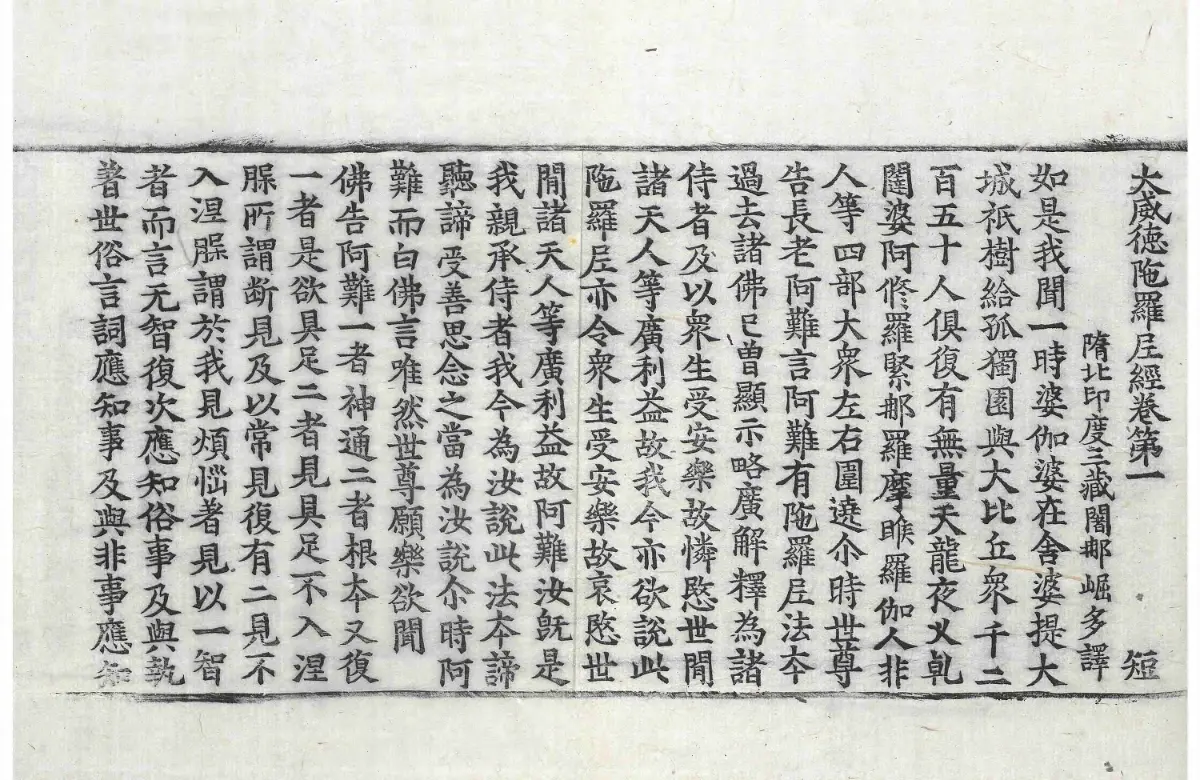 大威德陁羅尼經卷第一　短
隋北印度三藏闍那崛多譯
如是我聞一時婆伽婆在舍婆提大
城祇樹給孤獨園與大比丘衆千二
百五十人俱復有無量天龍夜叉乹
闥婆阿修羅緊那羅摩睺羅伽人非
人等四部大衆左右圍遶尒時世尊
告長老阿難言阿難有陁羅尼法夲
過去諸佛已曾顯示略廣解釋為諸
侍者及以衆生受安樂故憐愍世閒
諸天人等廣利益故我今亦欲說此
陁羅尼亦令衆生受安樂故哀愍世
閒諸天人等廣利益故阿難汝旣是
我親承侍者我今為汝說此法夲諦
聽諦受善思念之當為汝說尒時阿
難而白佛言唯然世尊願樂欲聞
佛告阿難一者神通二者根夲又復
一者是欲具足二者見具足不入涅
脲所謂断見及以常見復有二見不
入涅脲謂於我見煩惱著見以一智
者而言无智復次應知俗事及與執
著世俗言詞應知事及與非事應知